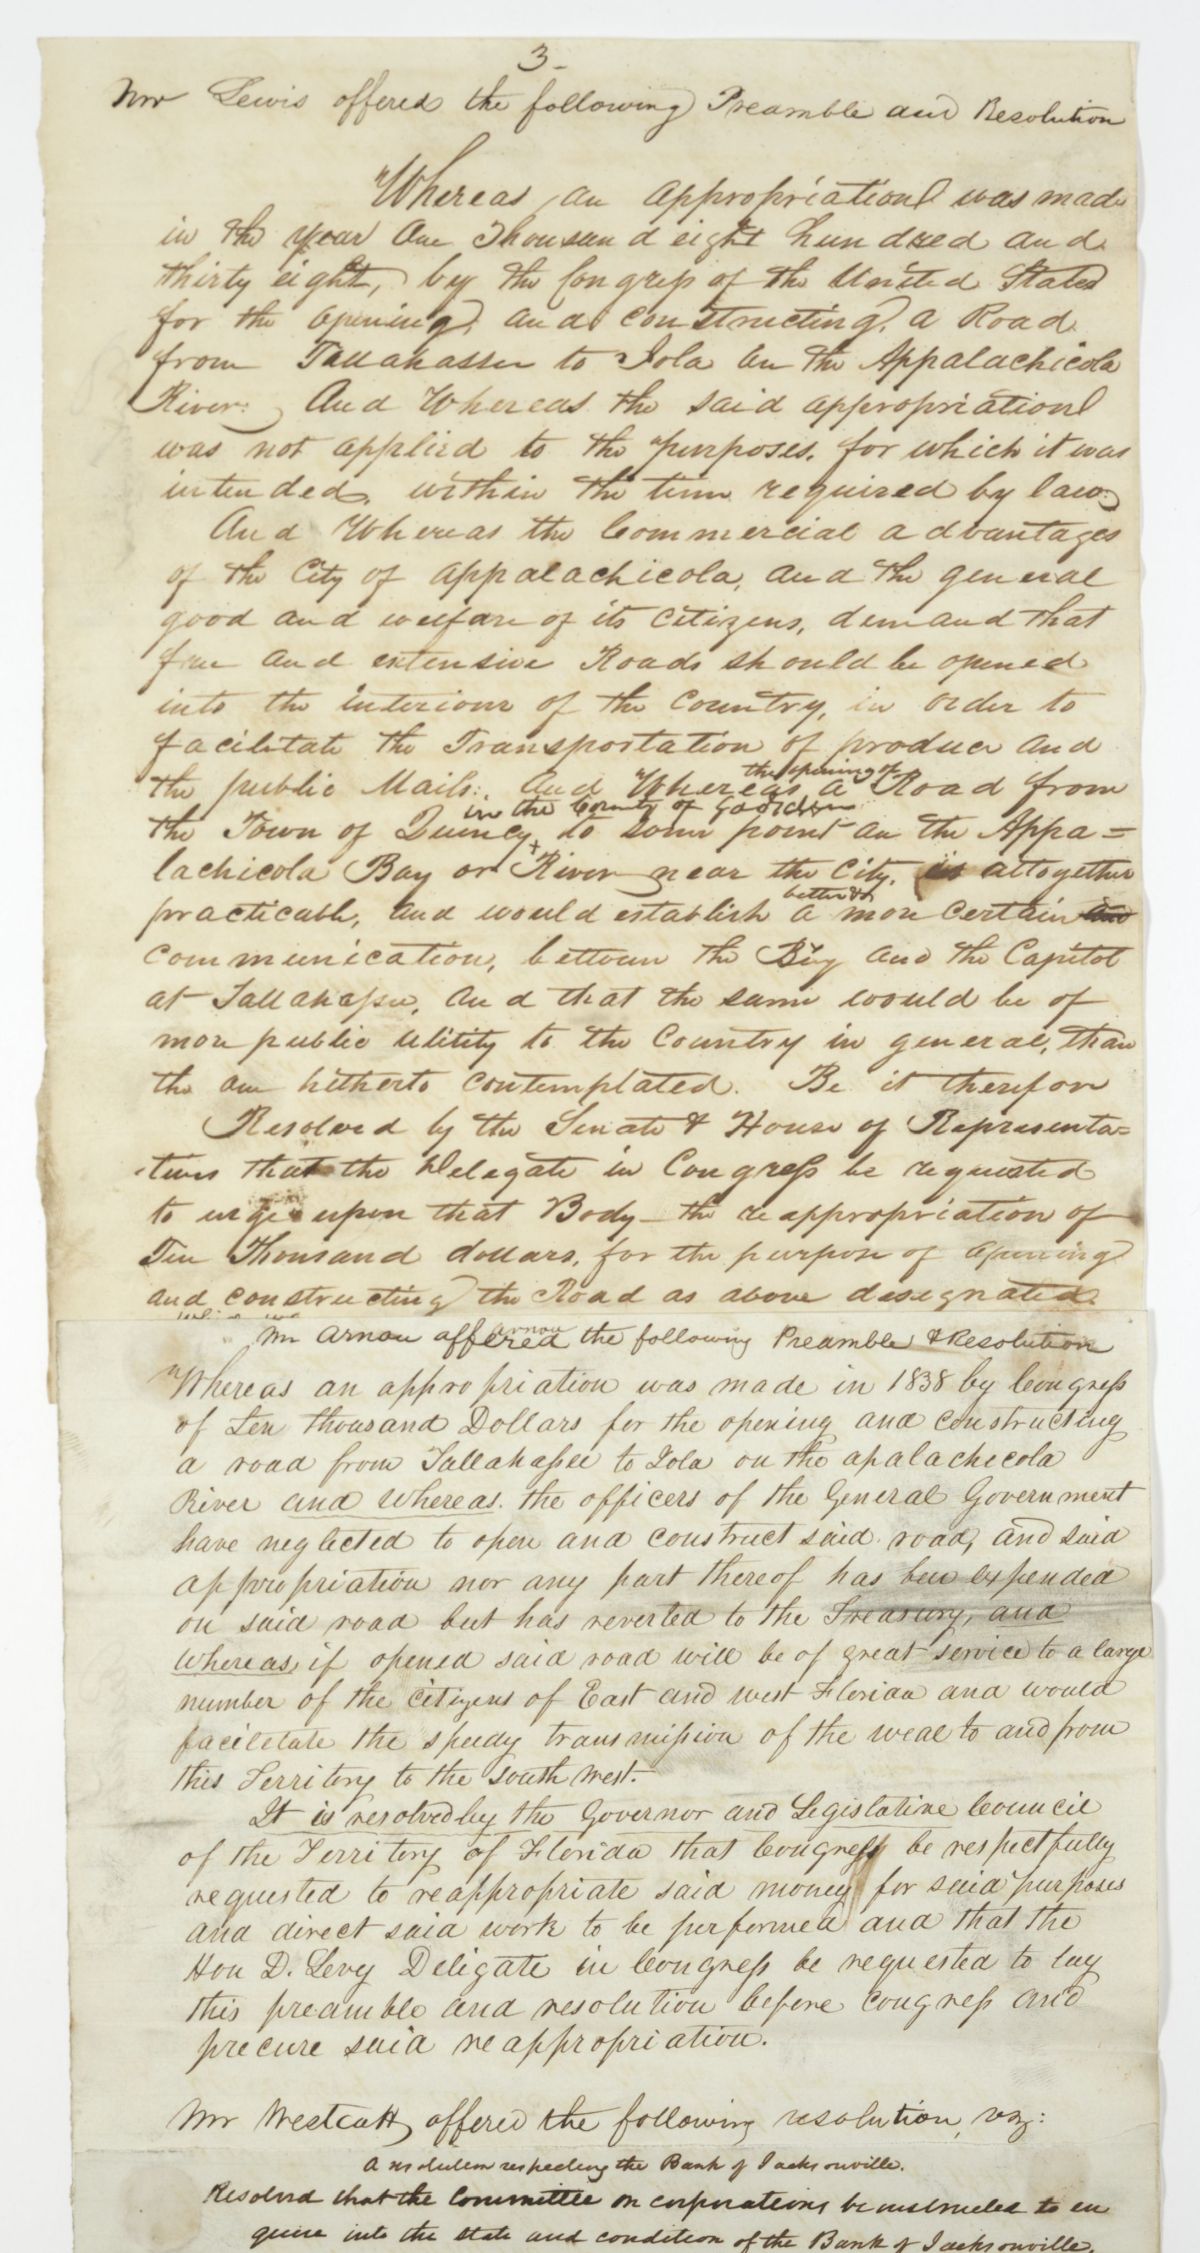 3-
Mr Lewis offered the following Preamble and Resolution
"Whereas, an appropriation was made
in the year One Thousand eight hundred and
thirty eight, by the Congress of the United States
for the opening, and constructing, a Road
from Tallahassee to Iola on the Appalachicola
River. And Whereas the said appropriation
was not applied to the purposes, for which it was
intended, within the time required by law.
And Whereas the Commercial advantages
of the City of Appalachicola, and the general
good and welfare of its Citizens, demand that
free and extensive Roads should be opened
into the interiour of the Country, in order to
facilitate the Transportation of produce and
the public Mails. And "Whereas the opening of a Road from
the Town of Quincy in the County of Gadsden to some point on the Appa=
lachicola Bay or River near the City, is altogether
practicable, and would establish a better & more certain and
communication, between the Bay and the Capitol
at Tallahassee, and that the same would be of
more public utility to the Country in general, than
the one hitherto contemplated. Be it therefore
Resolved by the Senate & House of Representa=
tives that the Delegate in Congress be requested
to urge upon that Body - the reappropriation of
Ten Thousand dollars, for the purpose of opening
and constructing the Road as above designated.
Mr Arnau offered the following Preamble & Resolution
"Whereas an appropriation was made in 1838 by Congress
of ten thousand Dollars for the opening and constructing
a road from Tallahassee to Iola on the apalachecola
River and whereas the officers of the General Government
have neglected to open and construct said road, and said
appropriation nor any part thereof has been expended
on said road but has reverted to the Treasury, and
whereas, if opened said road will be of great service to a large
number of the citizens of East and west Florida and would
facilitate the speedy transmission of the meal to and from
this Territory to the South West.
It is resolved by the Governor and Legislative Council
of the Territory of Florida that Congress be respectfully
requested to reappropriate said money for said purposes
and direct said work to be performed and that the
Hon D. Levy Deligate in Congress be requested to lay
this preamble and resolution before congress and
precure said reappropriation.
Mr Westcott offered the following resolution, viz:
A resolution respecting the Bank of Jacksonville.
Resolved that the Committee on corporations be instructed to en
quire into the state and condition of the Bank of Jacksonville.